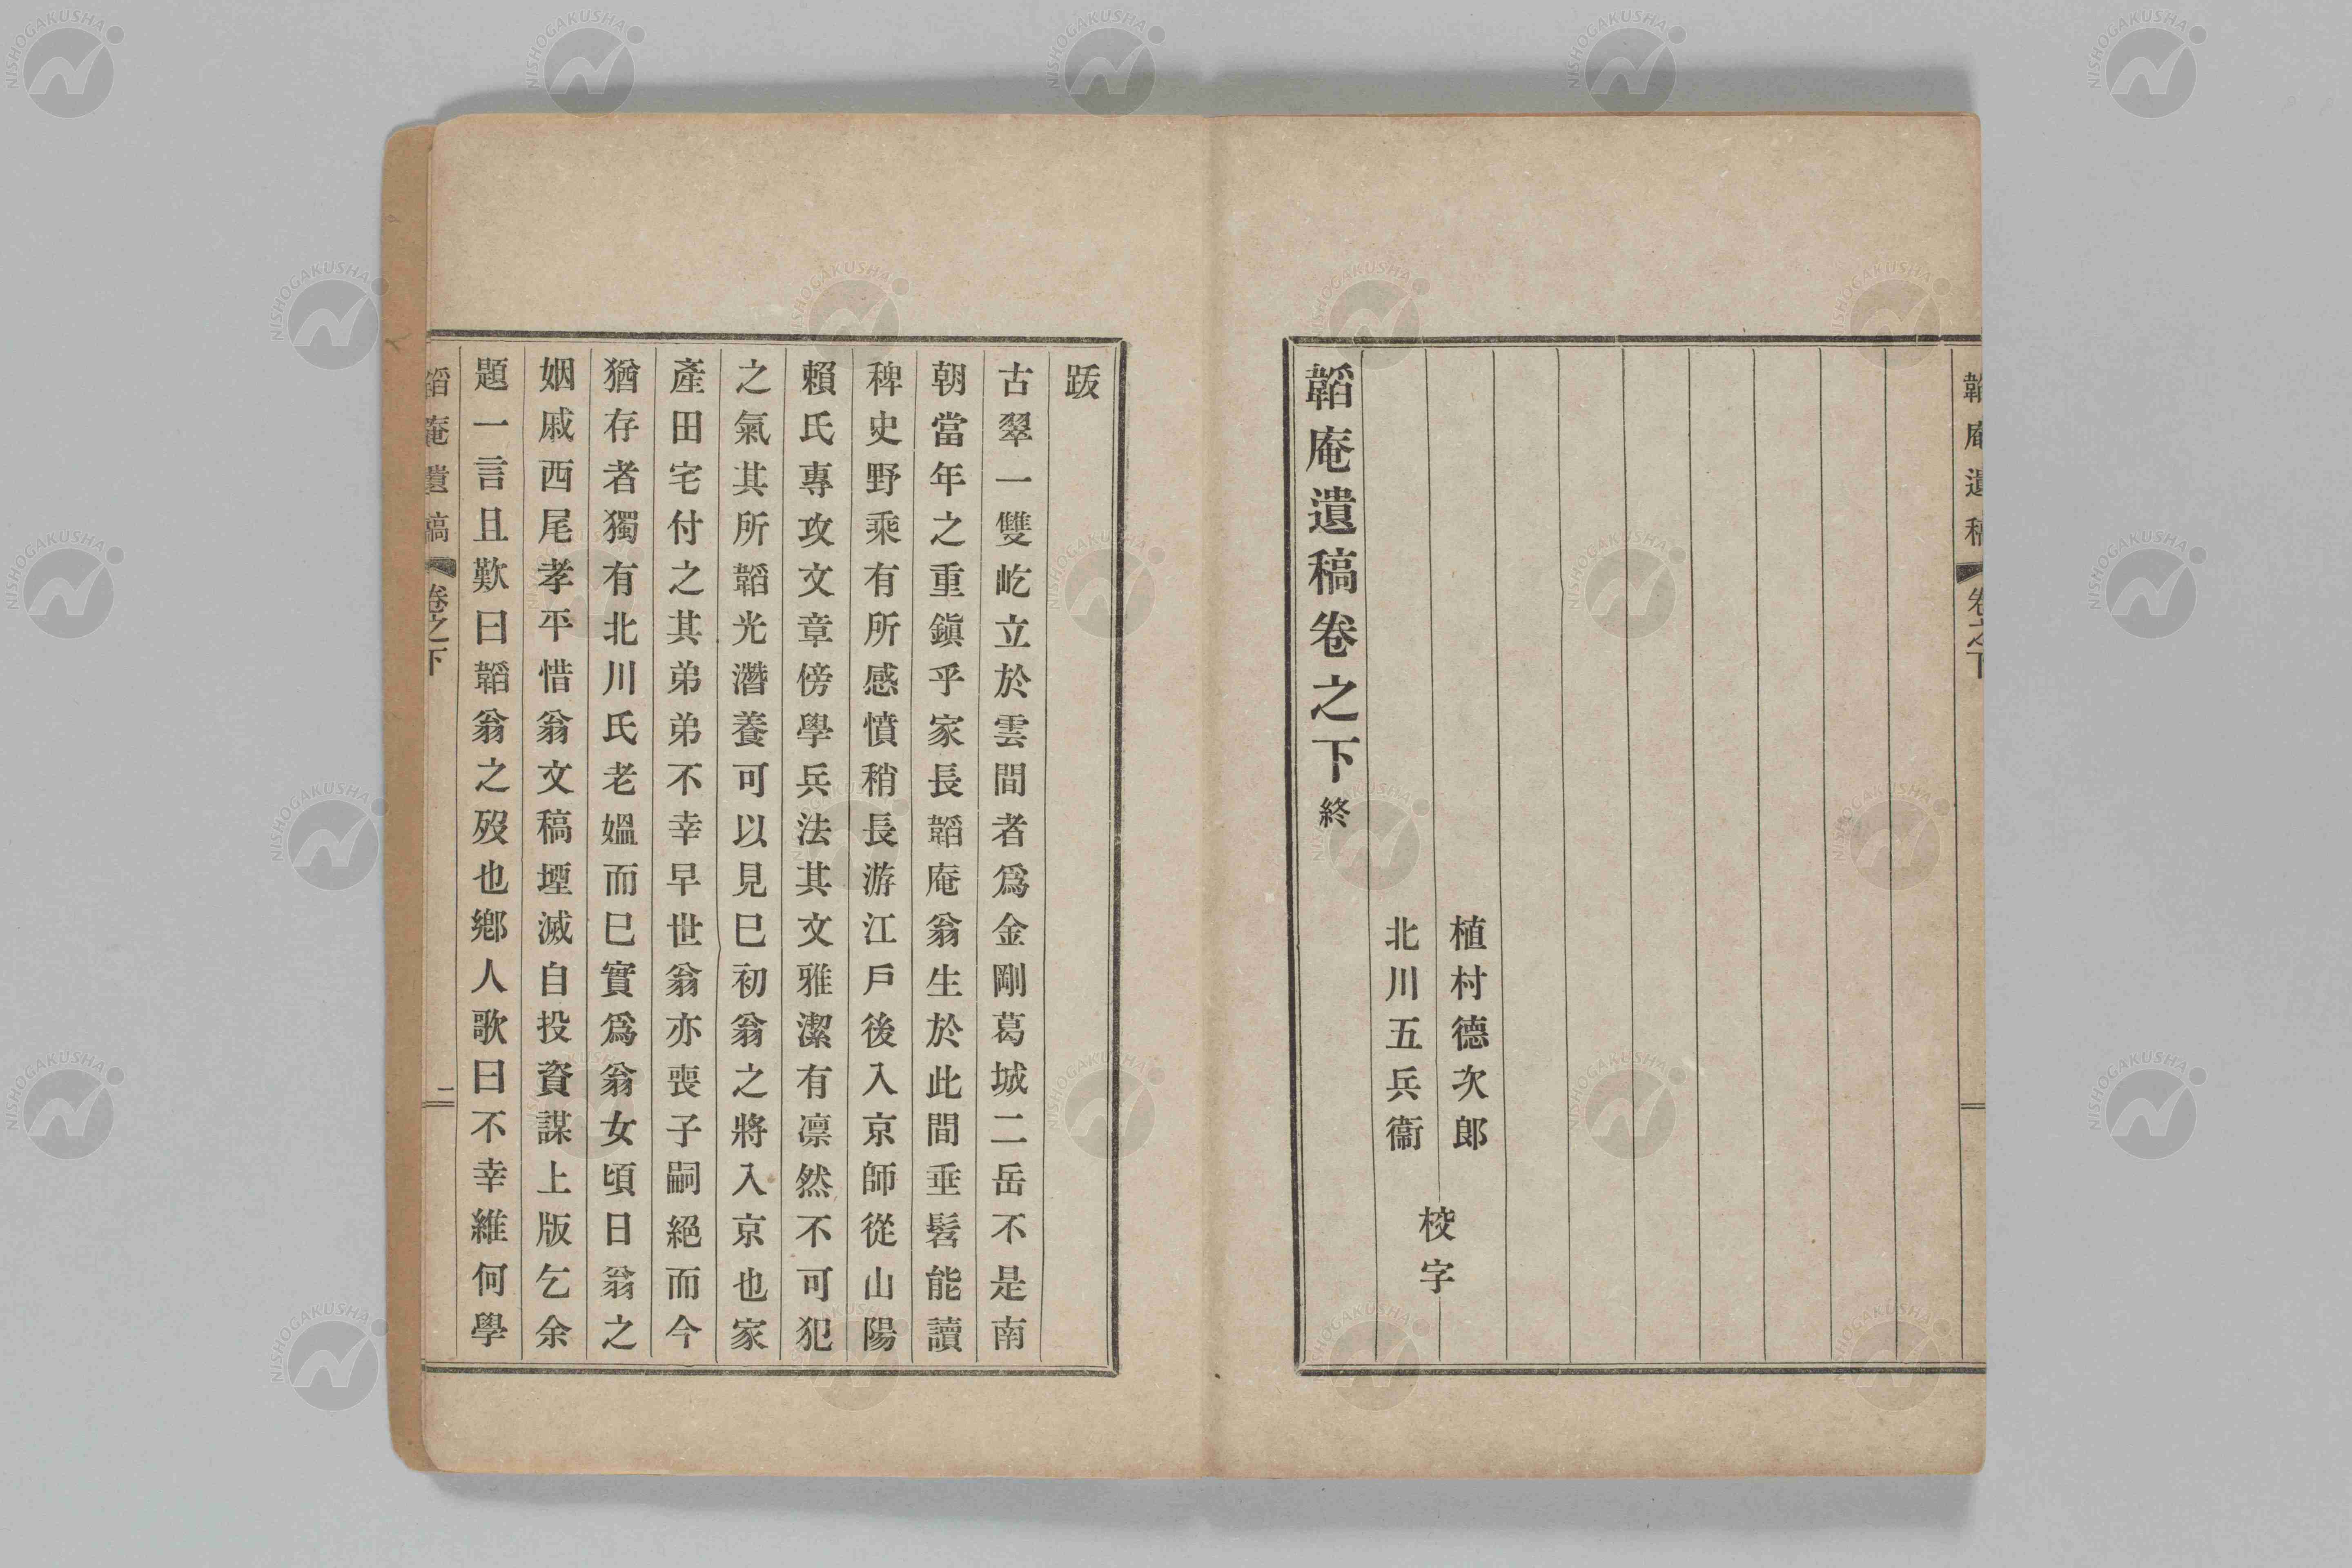 植村德次郎
北川五兵衞
校字
韜庵遺稿卷之下終
跋
古翠一雙屹立於雲間者爲金剛葛城二岳不是南
朝當年之重鎭乎家長韜庵翁生於此間垂髫能讀
稗史野乘有所感憤稍長游江戶後入京師從山陽
賴氏專攻文章傍學兵法其文雅潔有凛然不可犯
之氣其所韜光濳養可以見巳初翁之將入京也家
產田宅付之其弟弟不幸早世翁亦喪子嗣絕而今
猶存者獨有北川氏老媼而巳實爲翁女頃日翁之
姻戚西尾孝平惜翁文稿堙滅自投資謀上版乞余
題一言且歎曰韜翁之歿也鄕人歌曰不幸維何學
韜庵遺稿 卷之下 二
NISHOGAKUSHA